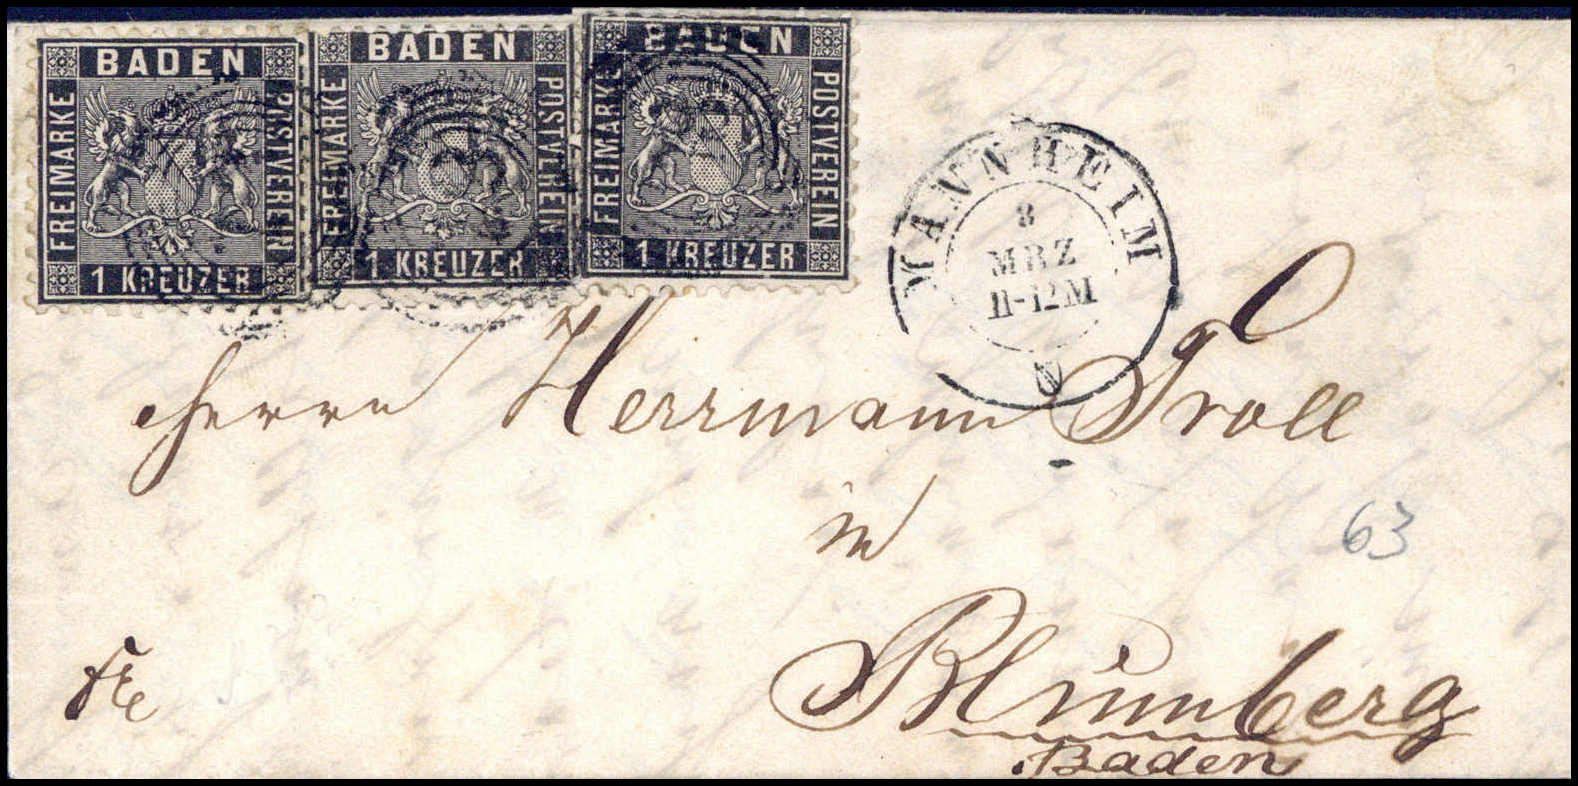 BADEN
FREIMARKE
POSTVEREIN
1 KREUZER
BADEN
FREIMARKE
POSTVEREIN
1 KREUZER
BADEN
FREIMARKE
POSTVEREIN
1 KREUZER
MANNHEIM
8
MRZ
11-12M
Herrn Herrmann Troll
in
63
Blumberg
Baden